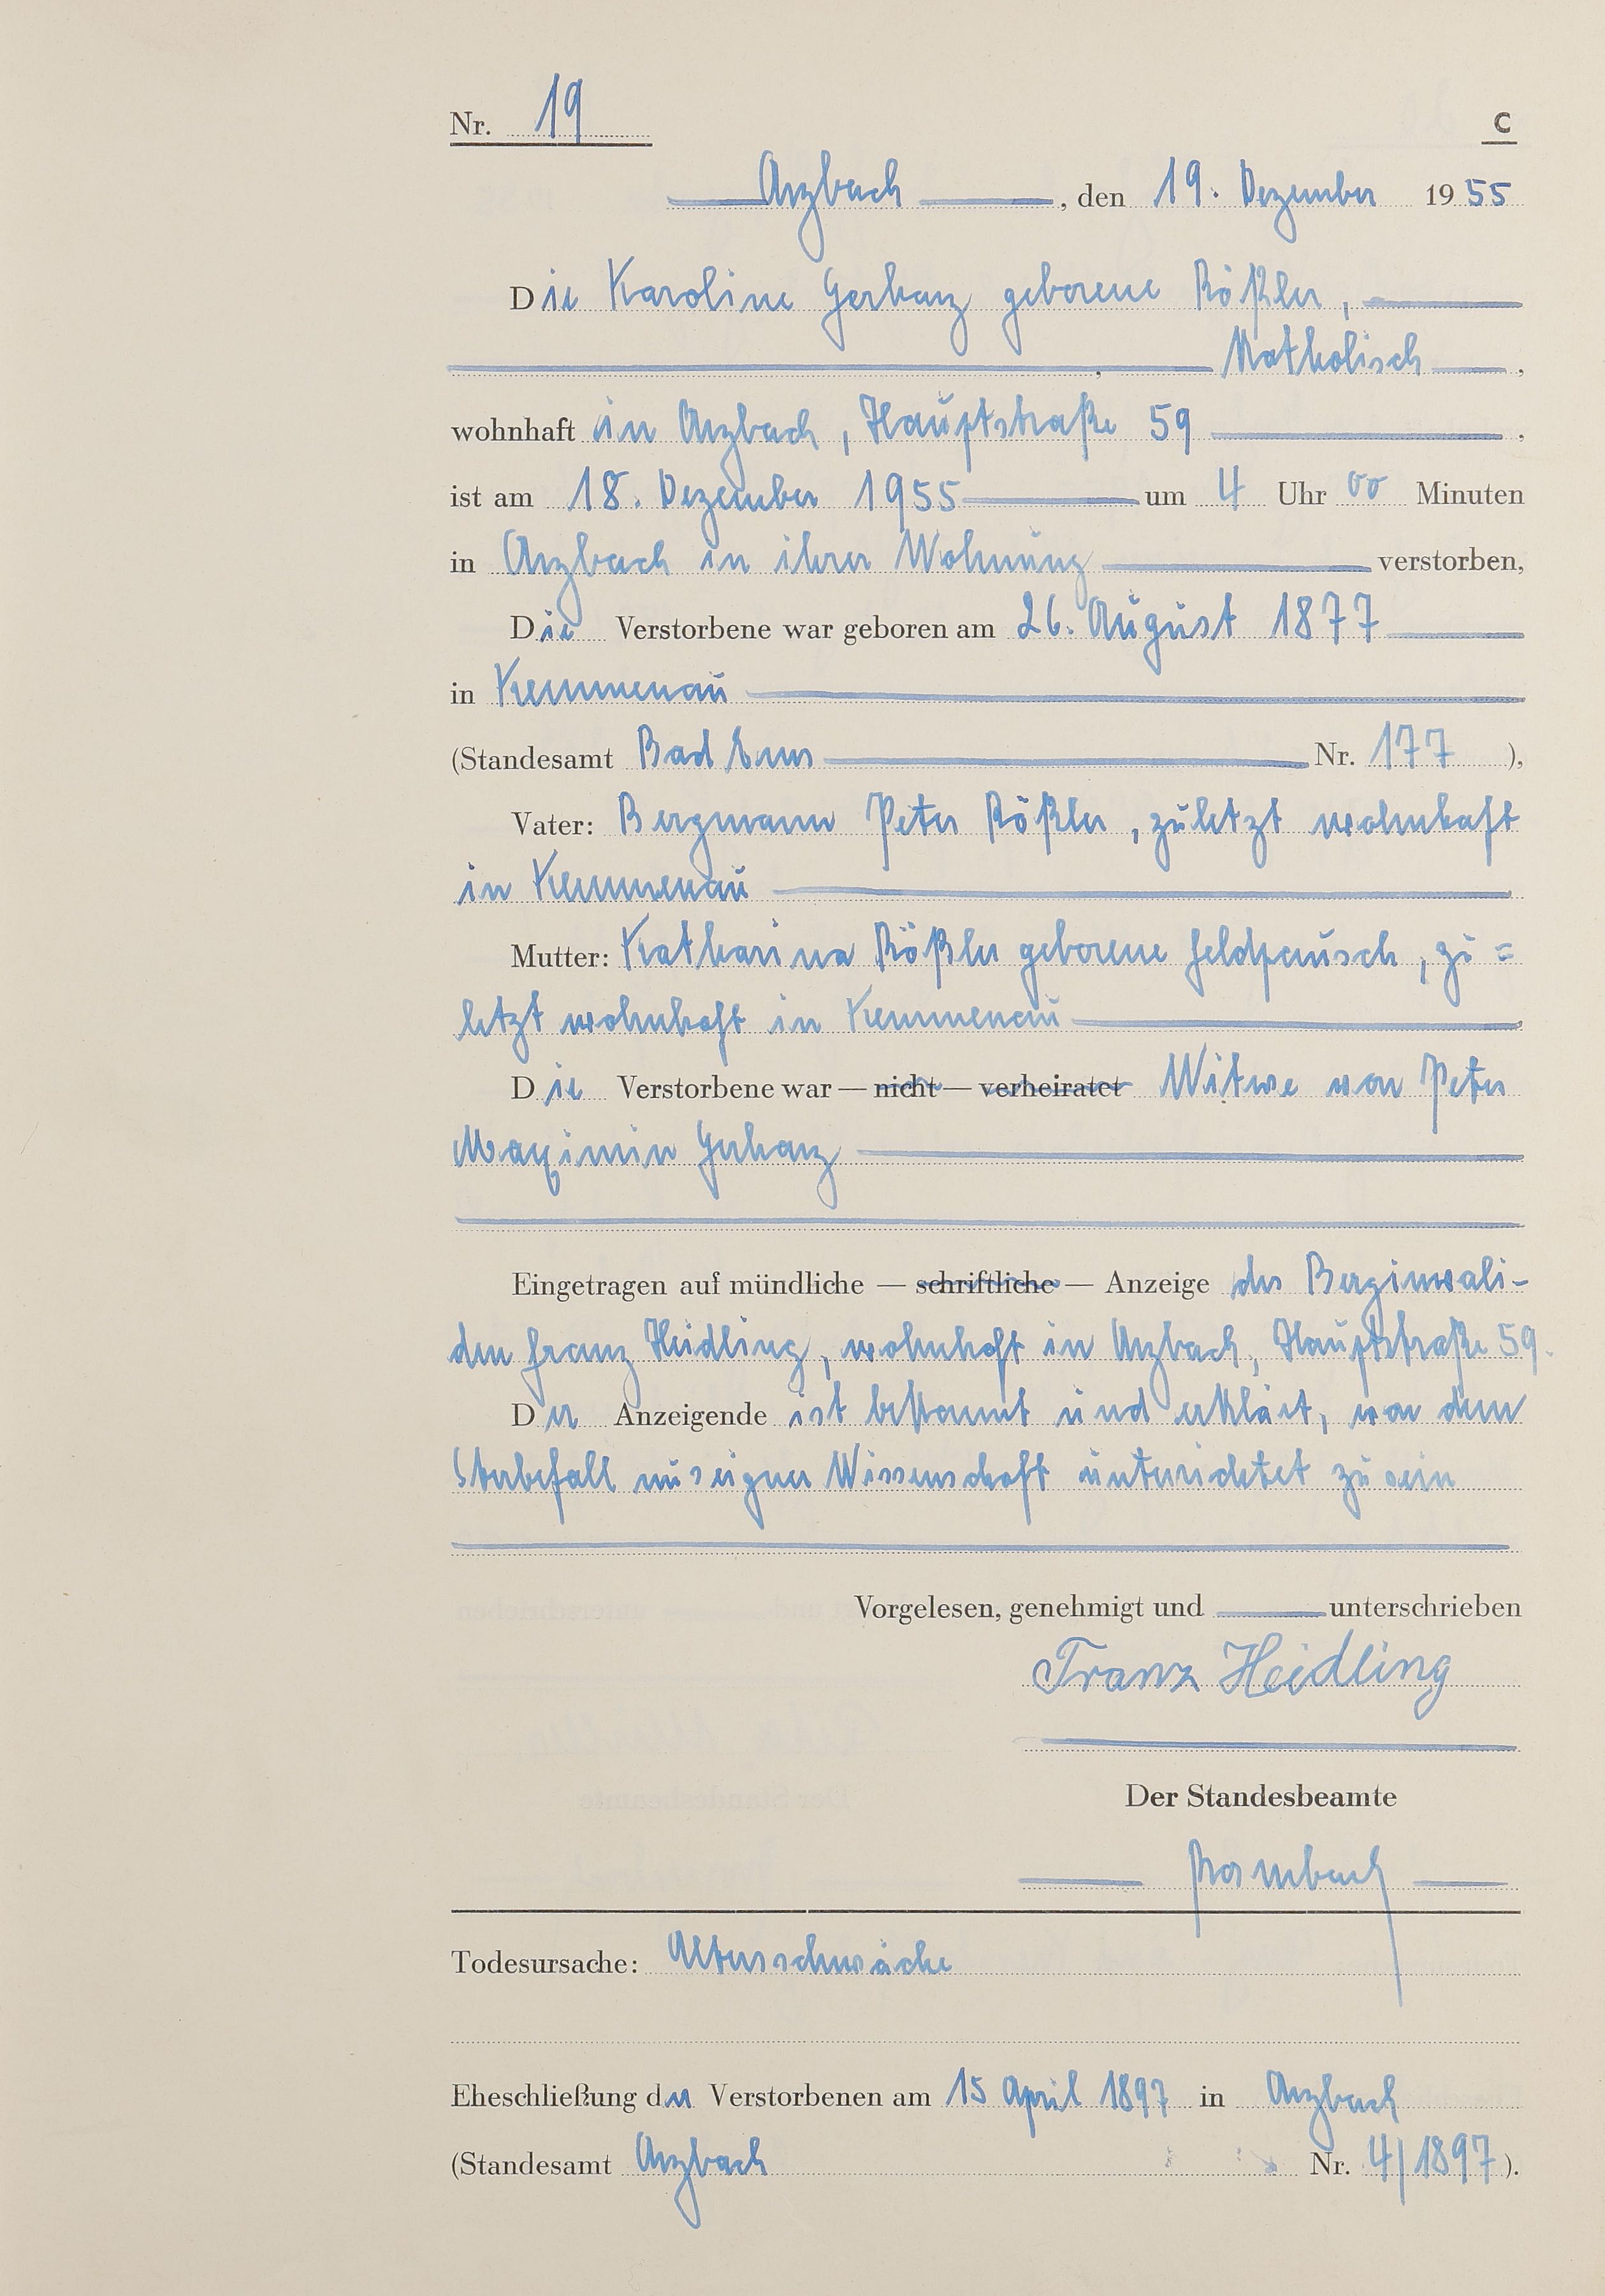 Nr. 19 C
Arzbach, den 19. Dezember 1955
Die Karoline Gerharz geborene Rößler,
, Katholisch,
wohnhaft in Arzbach, Hauptstraße 59,
ist am 18. Dezember 1955 um 4 Uhr 00 Minuten
in Arzbach in ihrer Wohnung verstorben,
Die Verstorbene war geboren am 26. August 1877
in Kemmenau
(Standesamt Bad Ems Nr. 177),
Vater: Bergmann Peter Rößler, zuletzt wohnhaft
in Kemmenau
Mutter: Katharina Rößler geborene Feldpausch, zu=
letzt wohnhaft in Kemmenau,
Die Verstorbene war — nicht — verheiratet Witwe von Peter
Maximin Gerharz
Eingetragen auf mündliche — schriftliche — Anzeige des Berginvali-
den Franz Heidling, wohnhaft in Arzbach, Hauptstraße 59.
Der Anzeigende ist bekannt und erklärt, von dem
Sterbefall aus eigner Wissenschaft unterrichtet zu sein
Vorgelesen, genehmigt und unterschrieben
Franz Heidling
Der Standesbeamte
Todesursache: Altersschwäche
Eheschließung der Verstorbenen am 15 April 1897 in Arzbach
(Standesamt Arzbach Nr. 4/1897).